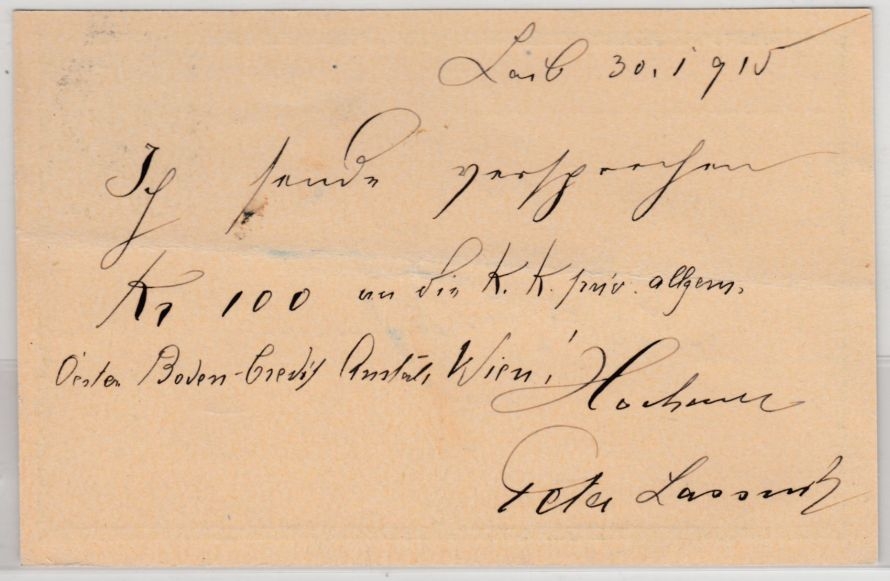 Laib 30. 1 915
Ich sende versprochen
Kr 100 an die K. K. priv. allgem.
Oester Boden-Credit Anstalt, Wien!
Peter Lassnik